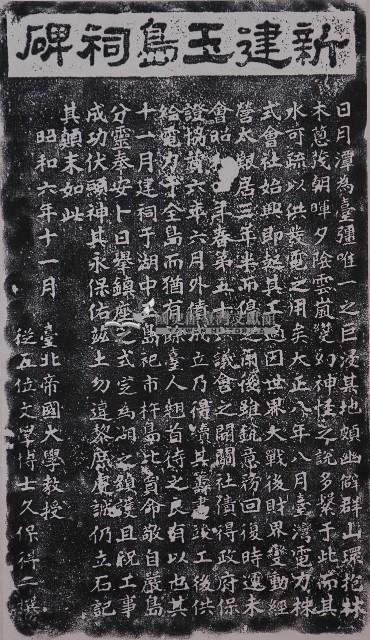 新建玉島祠碑
日月潭為臺疆唯一之巨浸其地頗幽僻群山環抱林
木蔥茂朝暉夕陰雲嵐變幻神怪之說多繫于此而其
水可疏以供發電之用矣大正八年八月臺灣電力株
式會社始興即起其工適因世界大戰後財界變動經
營太艱居三年半而停之爾後雖銳意務回復時運未
會昭和年春第五十議會之開關社債得政府保
證協贊六年六月外債成立乃得續其籌畫竣工後供
給電力于全島而猶有餘臺人翹首待之良有以也其
十一月建祠于湖中玉島祀市杵島比賣命敬自嚴島
分靈奉安卜日舉鎮座之式定為湖之鎮護且祝工事
成功伏願神其永保佑茲土勿遐黎庶虔誠仍立石記
其顛末如此
昭和六年十一月 臺北帝國大學教授
從五位文學博士久保得二撰